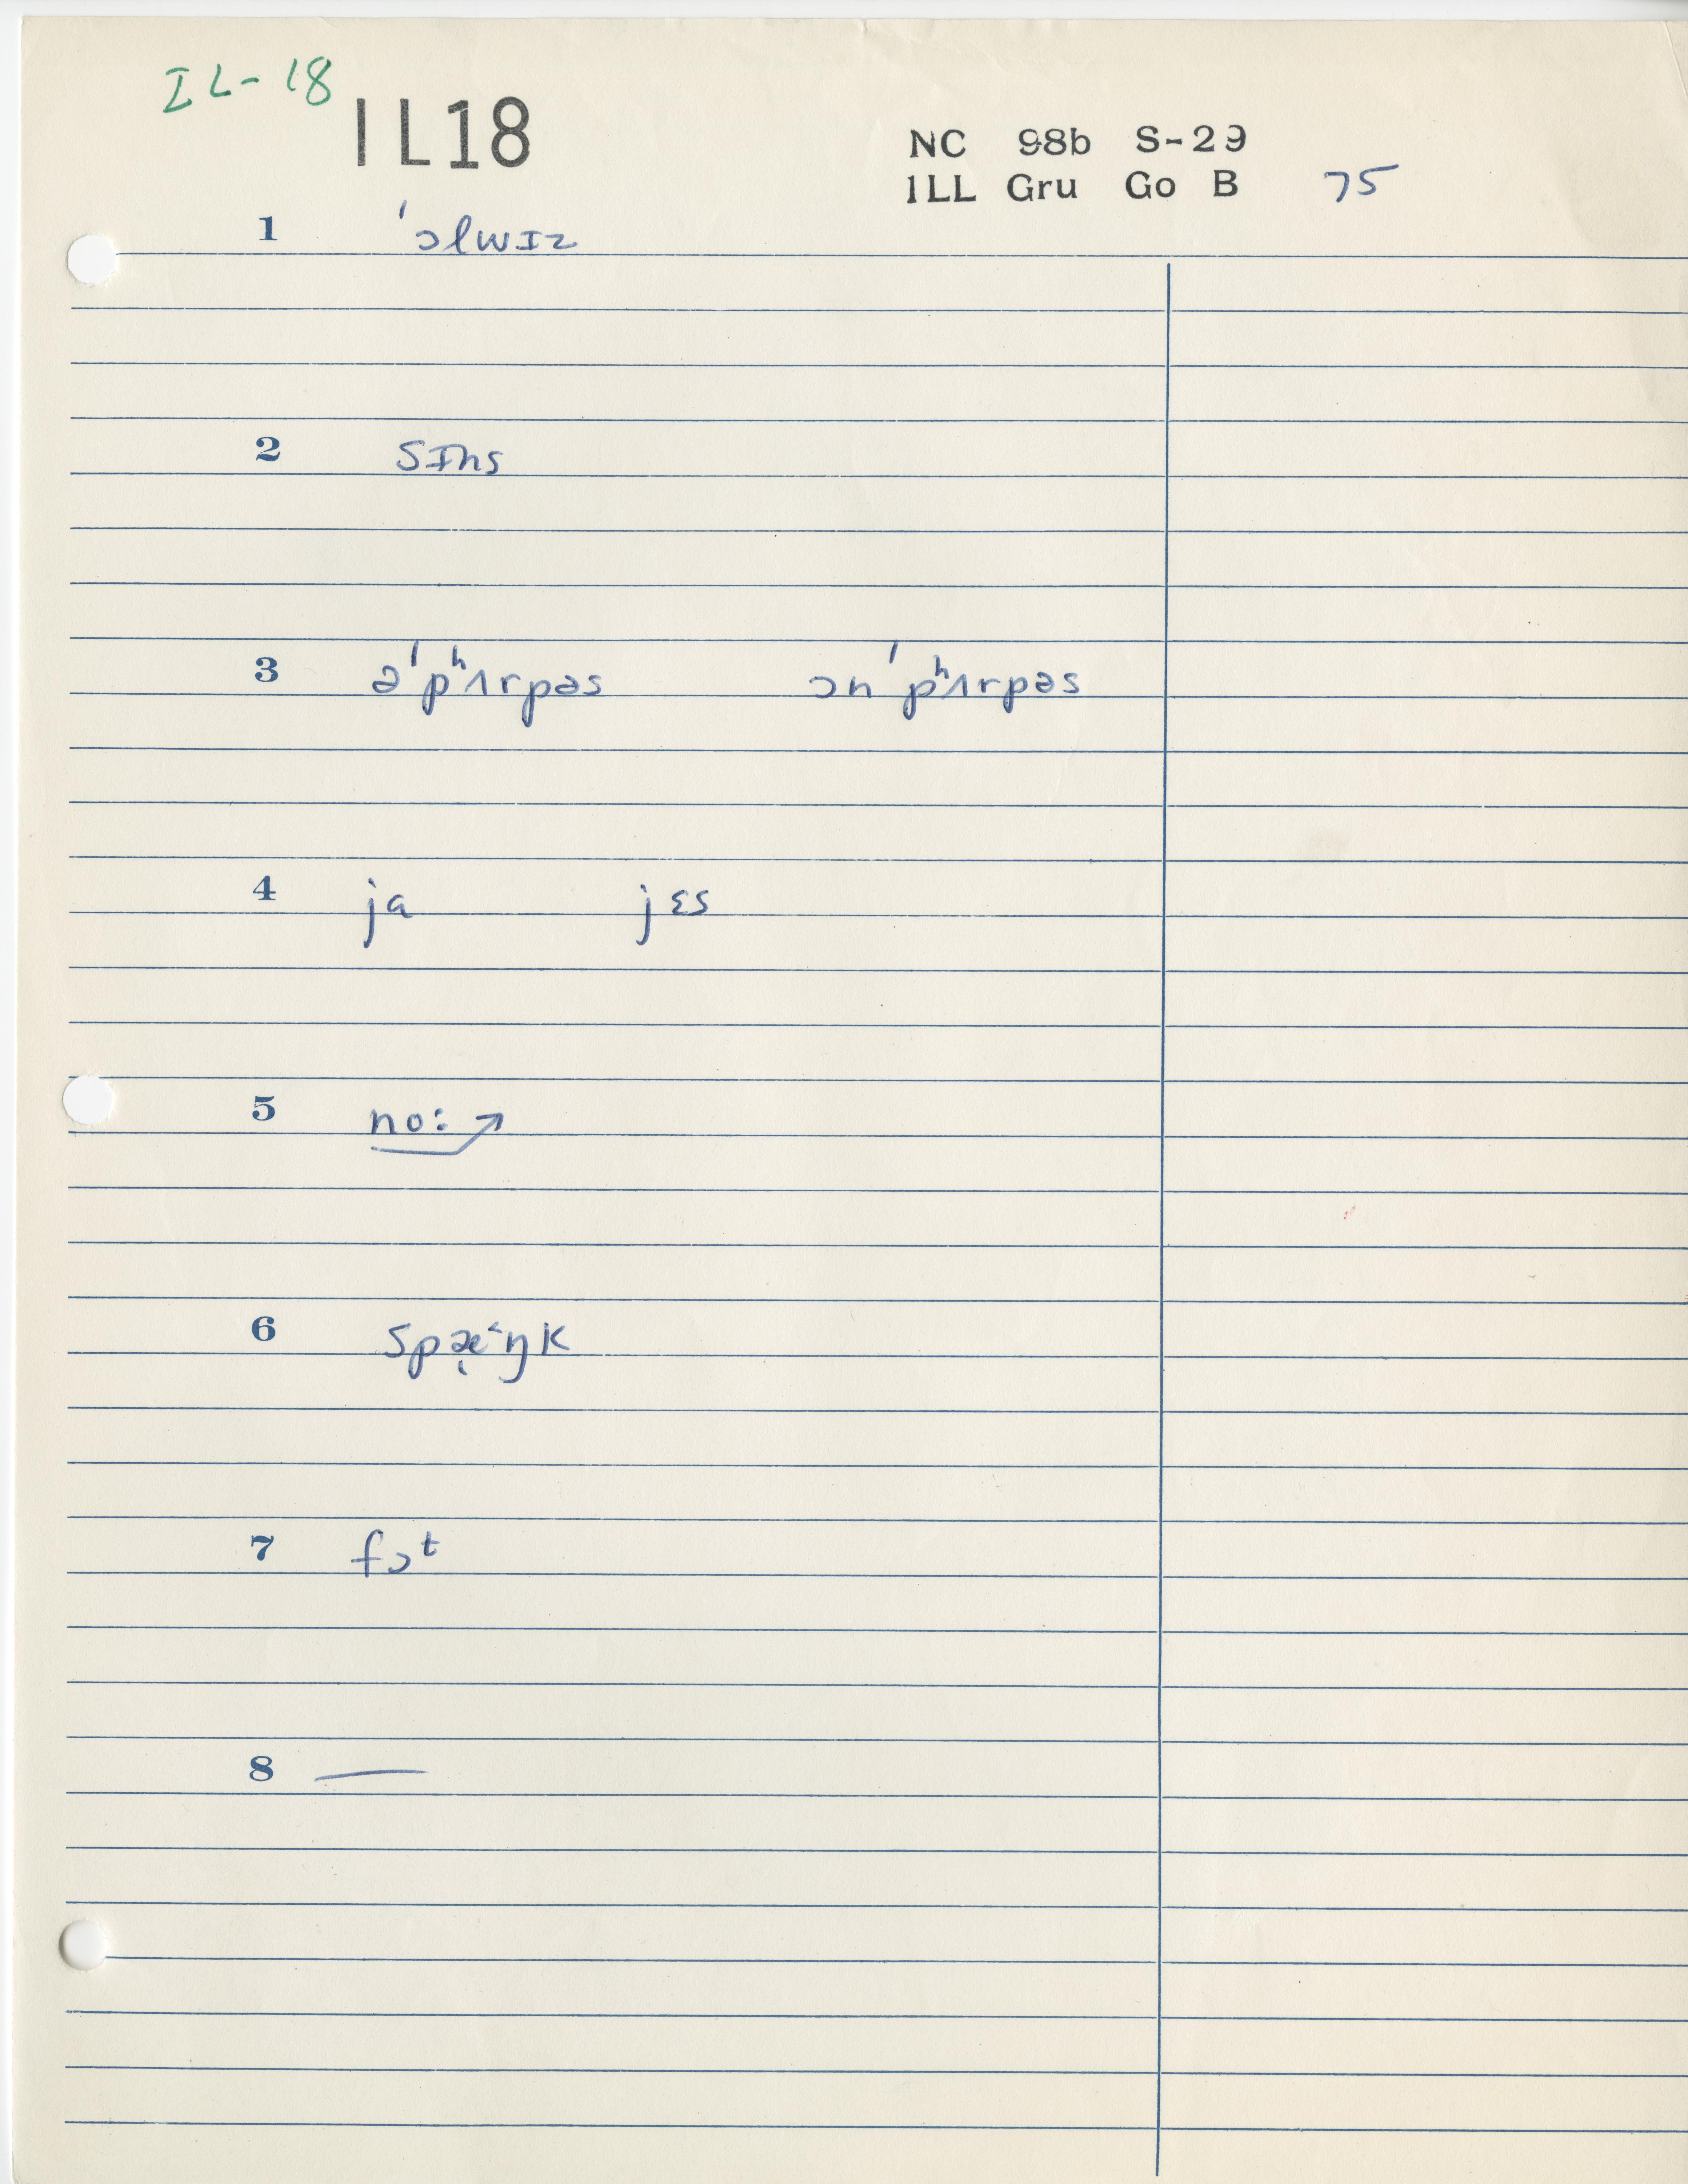 IL-18
IL18
NC 98b S-29
ILL Gru Go B 75
1 ˈɔlwɪz
2 sɪns
3 əˈpʰʌrpəs ɔnˈpʰʌrpəs
4 ja jɛs
5 no: ↗
6 spæ̨˂ŋk
7 fɔᵗ
8 —